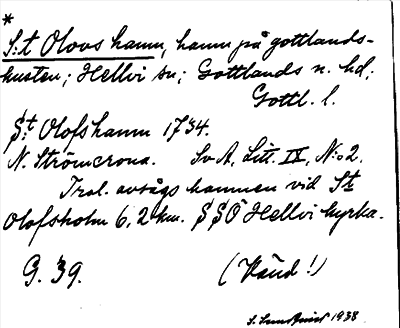 *
S:t Olovs hamn, hamn på gottlands-
kusten; Hellvi sn; Gottlands n. hd;
Gottl. l.
S:t Olofshamn 1734.
N. Strömcrona. Sv A, Litt. IX, N:o 2.
Trol. avsågs hamnen vid S:t
Olofsholm 6,2 km. SSÖ Hellvi kyrka.
G. 39. (Vänd!)
S. 1938